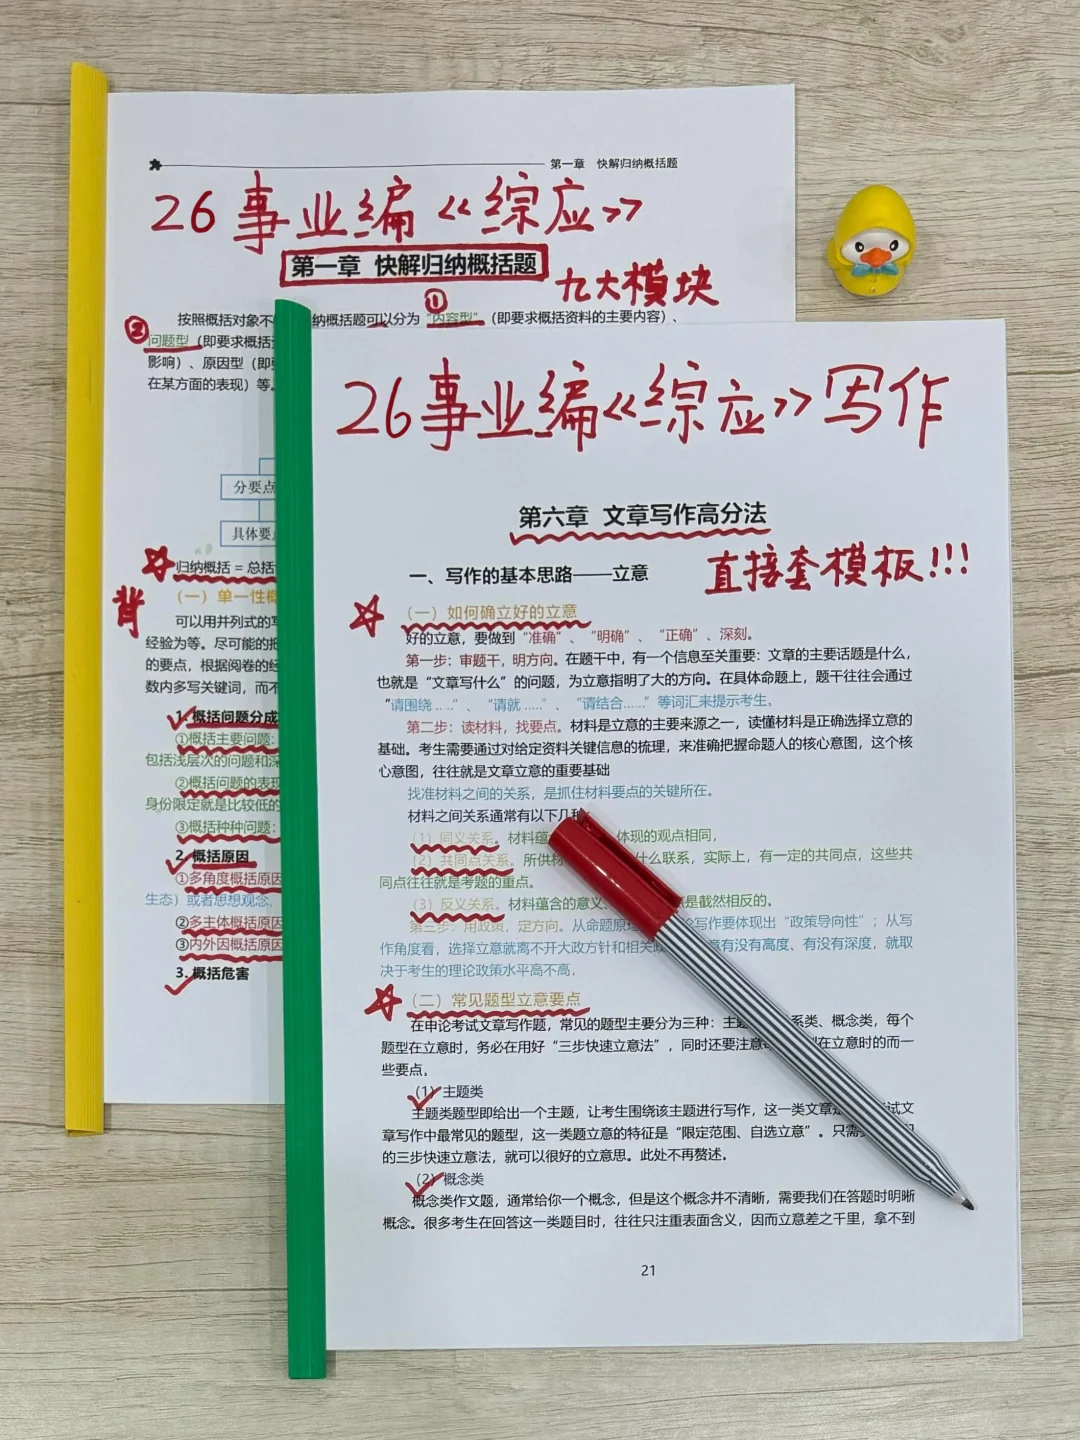 第一章 快解归纳概括题
26事业编《综应》
第一章 快解归纳概括题
九大模块
①
按照概括对象不 纳概括题可以分为“内容型”（即要求概括资料的主要内容）、
②
问题型（即要求概括
影响）、原因型（即
在某方面的表现）等。
分要点
具体要
归纳概括 = 总括
背
（一）单一性概
可以用并列式的写
经验为等。尽可能的把
的要点，根据阅卷的经
数内多写关键词，而不
1. 概括问题分成
①概括主要问题：
包括浅层次的问题和深
②概括问题的表现
身份限定就是比较低的
③概括种种问题：
2. 概括原因
①多角度概括原因
生态）或者思想观念、
②多主体概括原因
③内外因概括原因
3. 概括危害
26事业编《综应》写作
第六章 文章写作高分法
直接套模板!!!
一、写作的基本思路——立意
（一）如何确立好的立意
好的立意，要做到“准确”、“明确”、“正确”、深刻。
第一步：审题干，明方向。在题干中，有一个信息至关重要：文章的主要话题是什么，
也就是“文章写什么”的问题，为立意指明了大的方向。在具体命题上，题干往往会通过
“请围绕……”、“请就……”、“请结合……”等词汇来提示考生，
第二步：读材料，找要点。材料是立意的主要来源之一，读懂材料是正确选择立意的
基础。考生需要通过对给定资料关键信息的梳理，来准确把握命题人的核心意图，这个核
心意图，往往就是文章立意的重要基础
找准材料之间的关系，是抓住材料要点的关键所在。
材料之间关系通常有以下几种
（1）同义关系。材料蕴 体现的观点相同，
（2）共同点关系。所供材 什么联系，实际上，有一定的共同点，这些共
同点往往就是考题的重点。
（3）反义关系。材料蕴含的意义、 是截然相反的。
第三步：用政策，定方向。从命题原 写作要体现出“政策导向性”；从写
作角度看，选择立意就离不开大政方针和相关政 意有没有高度、有没有深度，就取
决于考生的理论政策水平高不高，
（二）常见题型立意要点
在申论考试文章写作题，常见的题型主要分为三种：主题 系类、概念类，每个
题型在立意时，务必在用好“三步快速立意法”，同时还要注意 在立意时的而一
些要点，
（1）主题类
主题类题型即给出一个主题，让考生围绕该主题进行写作，这一类文章是 试文
章写作中最常见的题型，这一类题立意的特征是“限定范围、自选立意”。只需
的三步快速立意法，就可以很好的立意思。此处不再赘述。
（2）概念类
概念类作文题，通常给你一个概念，但是这个概念并不清晰，需要我们在答题时明晰
概念。很多考生在回答这一类题目时，往往只注重表面含义，因而立意差之千里，拿不到
21